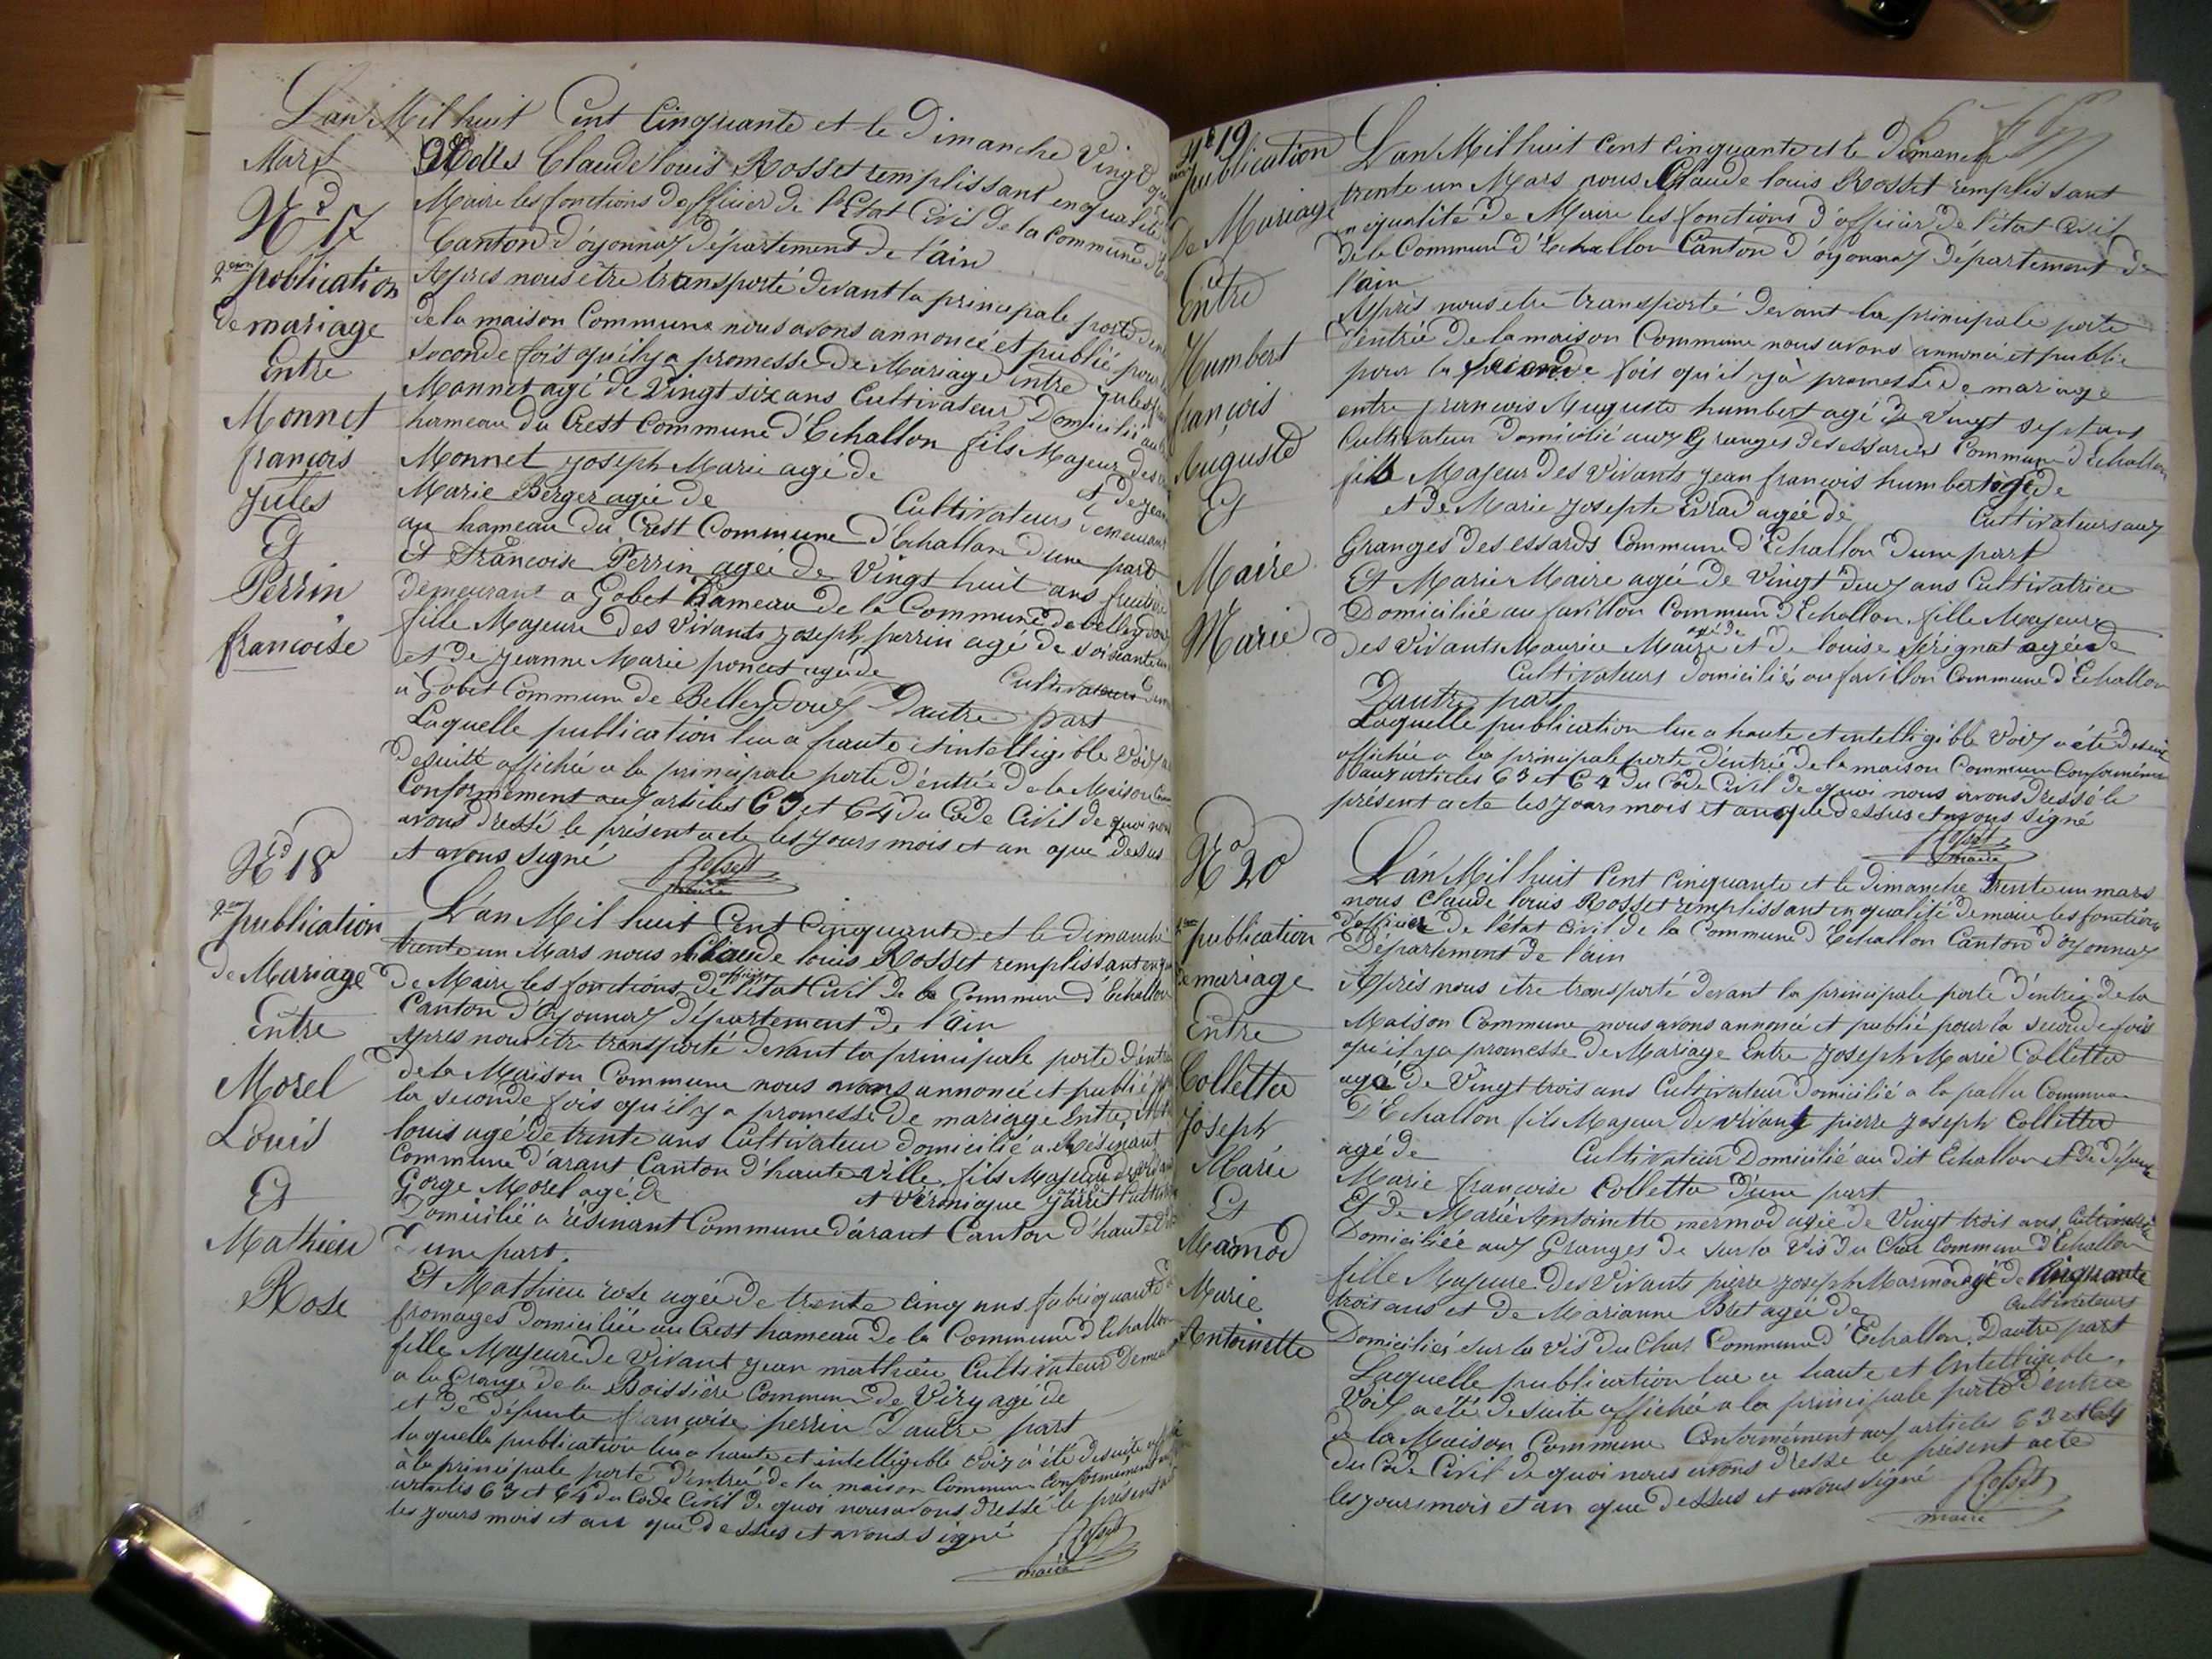 L'an Mil huit Cent Cinquante et le Dimanche Vingt
Mars
Nous Claude louis Rosset remplissant en qualité de
Maire les fonctions d'officier de l'Etat Civil de la Commune d'
Canton d'oyonnax département de l'ain
N° 17
2eme publication
de mariage
Entre
Monnet
françois
Jules
Et
Perrin
francoise
Apres nous être transporté devant la principale porte
de la maison Commune nous avons annoncé et publié pour la
seconde fois qu'il y a promesse de Mariage entre Jules
Monnet agé de Vingt six ans Cultivateur Domicilié au
hameau du Crest Commune d'Echallon fils Majeur des
Monnet joseph Marie agé de
Marie Berger agée de Cultivateurs demeurant
au hameau du Crest Commune d'Echallon d'une part
Et Francoise Perrin agée de Vingt huit ans
demeurant a Gobet hameau de la Commune de belleydoux
fille Majeure des Vivants joseph perrin agé de soixante
et de jeanne Marie poncet agée de Cultivateurs
a Gobet Commune de Belleydoux D'autre part
Laquelle publication lue a haute et intelligible Voix a
desuite affichée a la principale porte d'entrée de la Maison
Conformement aux articles 63 et 64 du Code Civil de quoi nous
avons Dressé le présent acte les jours mois et an que dessus
et avons signé Rosset
maire
N° 18
2eme publication
de Mariage
Entre
Morel
Louis
Et
Mathieu
Rose
L'an Mil huit Cent Cinquante et le dimanche
trente un Mars nous Claude louis Rosset remplissant en
de Maire les fonctions de officier l'état Civil de la Commune d'Echallon
Canton d'Oyonnax département de l'ain
Apres nous être transporté devant la principale porte d'entrée
de la Maison Commune nous avons annoncé et publié
la seconde fois qu'il y a promesse de mariage Entre
louis agé de trente ans Cultivateur domicilié a Résinant
Commune d'arant Canton d'haute Ville fils Majeur
Gorge Morel agé de et Véronique
Domicilié a résinant Commune d'arant Canton d'haute
d'une part.
Et Mathieu rose agée de trente cinq ans fabriquante
fromages domiciliée au Crest hameau de la Commune d'Echallon
fille Majeure de Vivant jean mathieu Cultivateur
a la Grange de la Boissière Commune de Viry agé de
et de défunte françoise perrin D'autre part
laquelle publication lue a haute et intelligible Voix a été desuite
à la principale porte d'entrée de la maison Commune Conformément
articles 63 et 64 du Code Civil de quoi nous avons dressé le présent
les jours mois et an que dessus et avons signé Rosset
maire
N° 19
publication
de Mariage
Entre
Humbert
françois
Auguste
Et
Maire
Marie
L'an Mil huit Cent Cinquante et le dimanche
trente un Mars nous Claude louis Rosset remplissant
en qualité de Maire les fonctions d'officier de l'état Civil
de la Commune d'Echallon Canton d'oyonnax département de
l'ain
Après nous etre transporté devant la principale porte
d'entrée de la maison Commune nous avons annoncé et publié
pour la seconde fois qu'il y à promesse de mariage
entre françois Auguste humbert agé de Vingt sept ans
Cultivateur Domicilié aux Granges des essards Commune d'Echallon
fils Majeur des Vivants jean françois humbert agé de
et de Marie josephte agée de Cultivateurs aux
Granges des essards Commune d'Echallon d'une part
Et Marie Maire agée de Vingt deux ans Cultivatrice
Domiciliée au favillon Commune d'Echallon fille Majeure
des Vivants Maurice Maire agé de et de louise Sérignat agée de
Cultivateurs domiciliés au favillon Commune d'Echallon
D'autre part
Laquelle publication lue a haute et intelligible Voix a été desuite
affichée a la principale porte d'entrée de la maison Commune Conformément
aux articles 63 et 64 du Code Civil de quoi nous avons Dressé le
présent acte les jours mois et an que dessus et avons signé
Rosset
maire
N° 20
publication
de mariage
Entre
Colletta
Joseph
Marie
Et
Marmod
Marie
Antoinette
L'an Mil huit Cent Cinquante et le dimanche trente un mars
nous Claude louis Rosset remplissant en qualité de maire les fonctions
d'officier de l'état civil de la Commune d'Echallon Canton d'oyonnax
Département de l'ain
Après nous etre transporté devant la principale porte d'entrée de la
Maison Commune nous avons annoncé et publié pour la seconde fois
qu'il y a promesse de Mariage Entre Joseph Marie Colletta
agé de Vingt trois ans Cultivateur Domicilié a la pallu Commune
D'Echallon fils Majeur de vivant pierre joseph Colletta
agé de Cultivateur Domicilié au dit Echallon et de défunte
Marie françoise Colletta d'une part
Et de Marie Antoinette mermod agée de Vingt trois ans Cultivatrice
Domiciliée aux Granges de sur la Vis du Chat Commune d'Echallon
fille Majeure des Vivants pierre joseph Marmod agé de Cinquante
trois ans et de Marianne Bret agée de Cultivateurs
Domiciliés sur la Vis du Chat Commune d'Echallon D'autre part
Laquelle publication lue a haute et Intelligible
Voix a été desuite affichée a la principale porte d'entrée
de la Maison Commune Conformément aux articles 63 et 64
du Code Civil de quoi nous avons dressé le présent acte
les jours mois et an que dessus et avons signé Rosset
maire